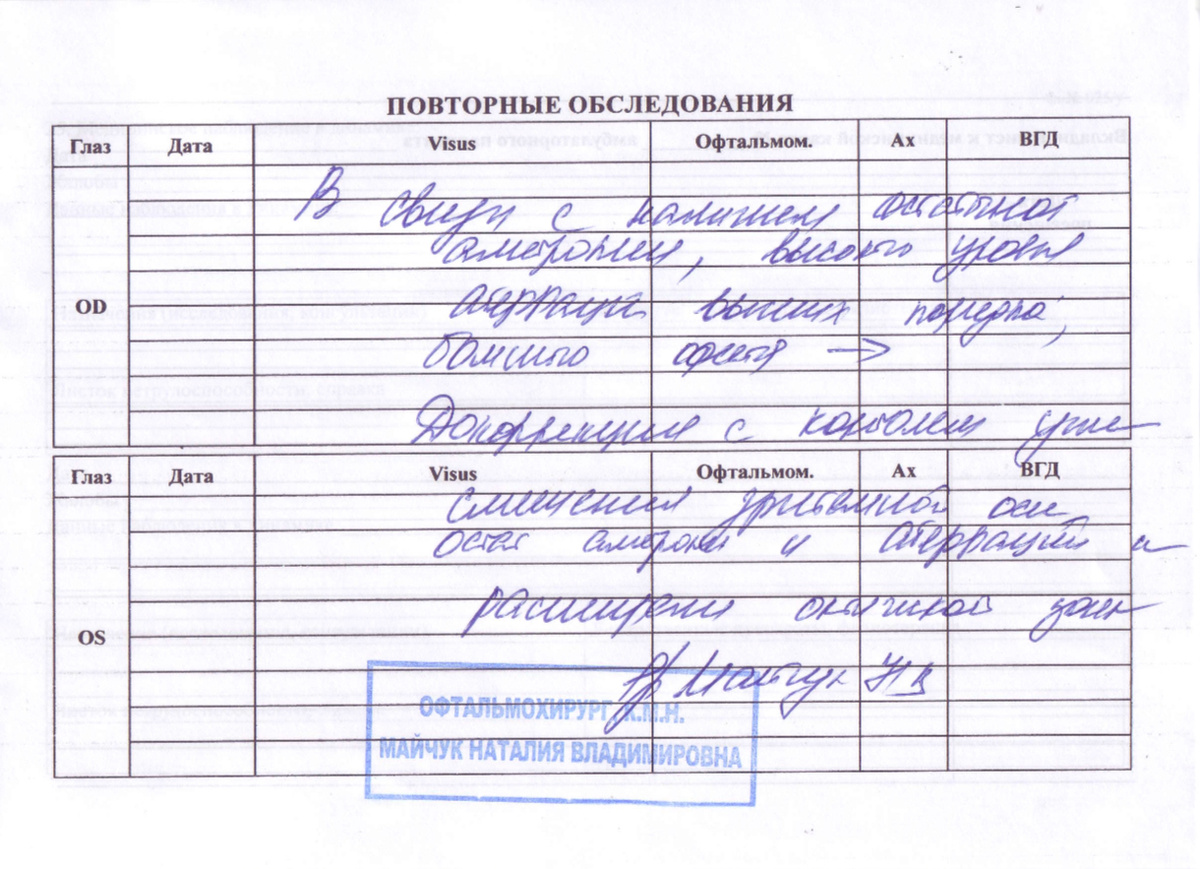 ПОВТОРНЫЕ ОБСЛЕДОВАНИЯ
Глаз Дата Visus Офтальмом. Ах ВГД
В связи с наличием остаточной
аметропии, высокого уровня
OD
аберраций высших порядка,
большого →
Докоррекция с контролем угла
Глаз Дата Visus Офтальмом. Ах ВГД
смещения зрительной оси
остат аметропии и аберраций и
расширени оптической зоны
OS
Майчук НВ
ОФТАЛЬМОХИРУРГ К.М.Н.
МАЙЧУК НАТАЛИЯ ВЛАДИМИРОВНА